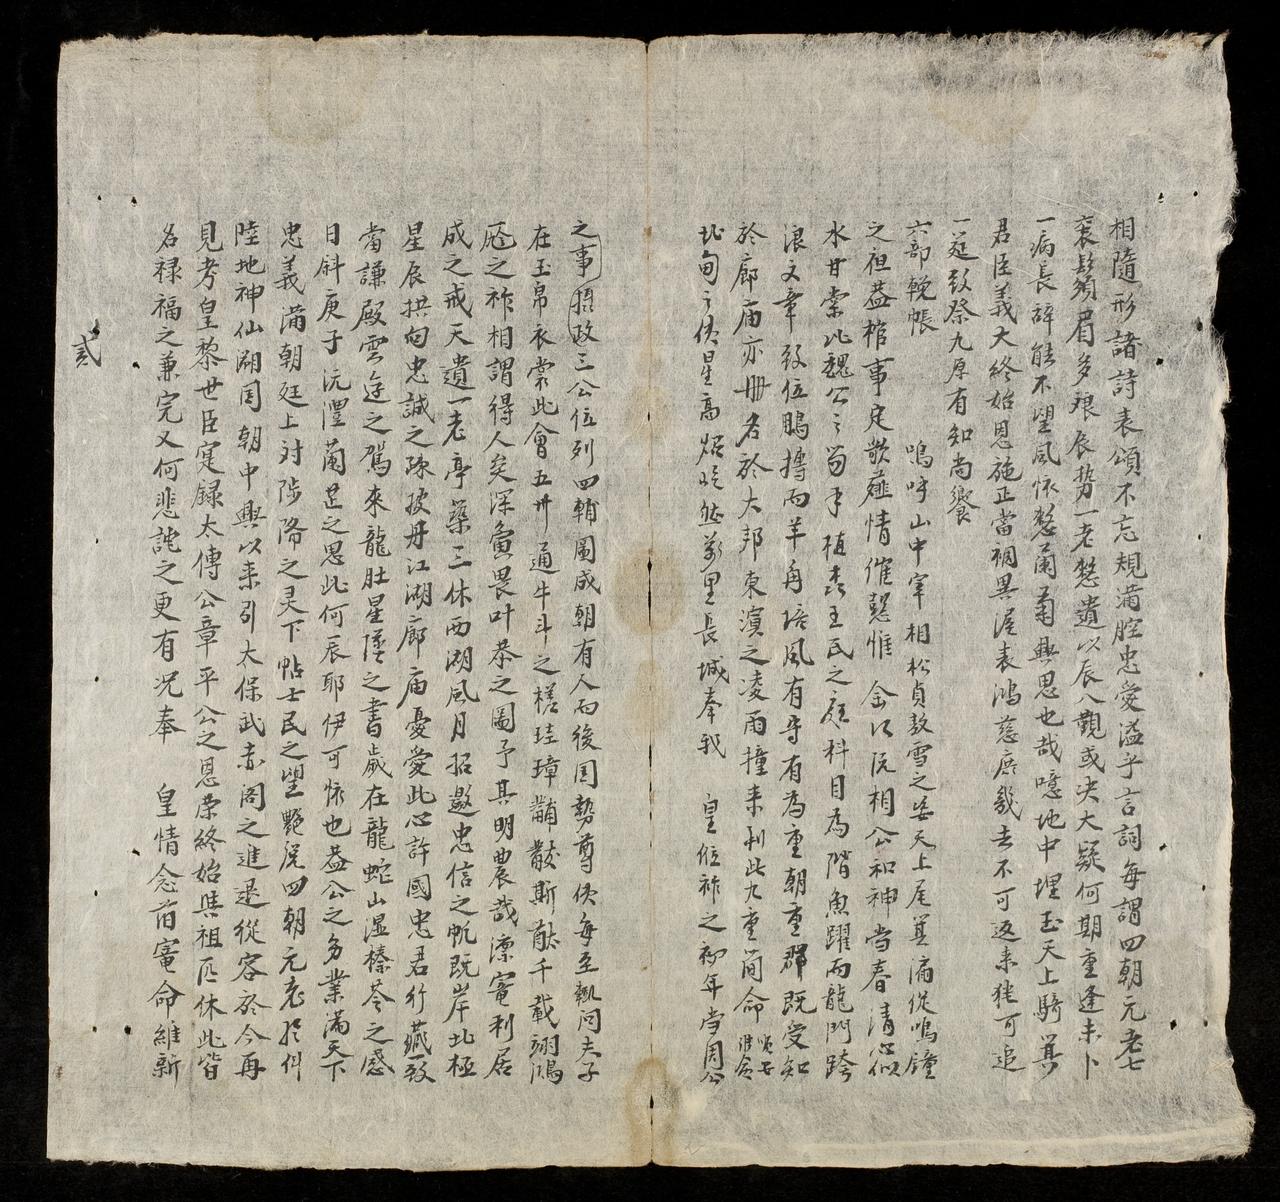 相隨形諸詩表頌不忘規滿腔忠愛溢乎言詞每謂四朝元老七
袠鬚眉多艱辰勢一老憖遺以辰入覲或决大疑何期重逢未卜
一病長辭能不望風懷愁蘭菊興思也哉噫地中埋玉天上騎箕
君臣義大終始恩施正當裯異渥表鴻慈庶幾去不可返来猶可追
一筵致祭九原有知尚饗
六部輓帳 嗚呼山中宰相松貞敖雪之姿天上尾箕痛從鳴鐘
之徂蓋棺事定歌薤情催懿惟 阮相公和神当春清心似
水甘棠比魏公之笏手植 王氏之庭科目為階魚躍而龍門跨
浪文章致位鵬摶而羊角培風有守有為重朝重郡既受知
於廊庙亦册名於大邦東演之凌雨撞来利此九重簡命
圻甸之使星高炤屹然萬里長城奉我 皇位祚之初年当周公
之事捂政三公位列四輔圖成朝有人而後国勢尊使每至輒问夫子
在玉帛衣裳此會五卅通牛斗之槎珪璋黼黻斯猷千載翊鴻
厖之祚相謂得人矣深奠畏叶恭之圖予其明農哉凛寵利居
成之戒天遺一老亭築三休西湖風月招邀忠信之帆既岸北極
星辰拱向忠誠之疎披丹江湖廊庙憂愛此心許國忠君行藏一致
當謙殿雲迬之駕來龍肚星墜之書歲在龍蛇山湿榛苓之感
日斜庚子沅澧蘭芷之思此何辰耶伊可懷也盖公之勿業滿天下
忠義滿朝廷上対陟降之灵下帖士民之望艷説四朝元老於何
陸地神仙溯囯朝中興以来引太保武赤阁之進退從容於今再
見考皇黎世臣寔録太傅公章平公之恩荣終始與祖匹休此皆
名禄福之兼完又何悲詫之更有况奉 皇情念旧寵命維新
貳